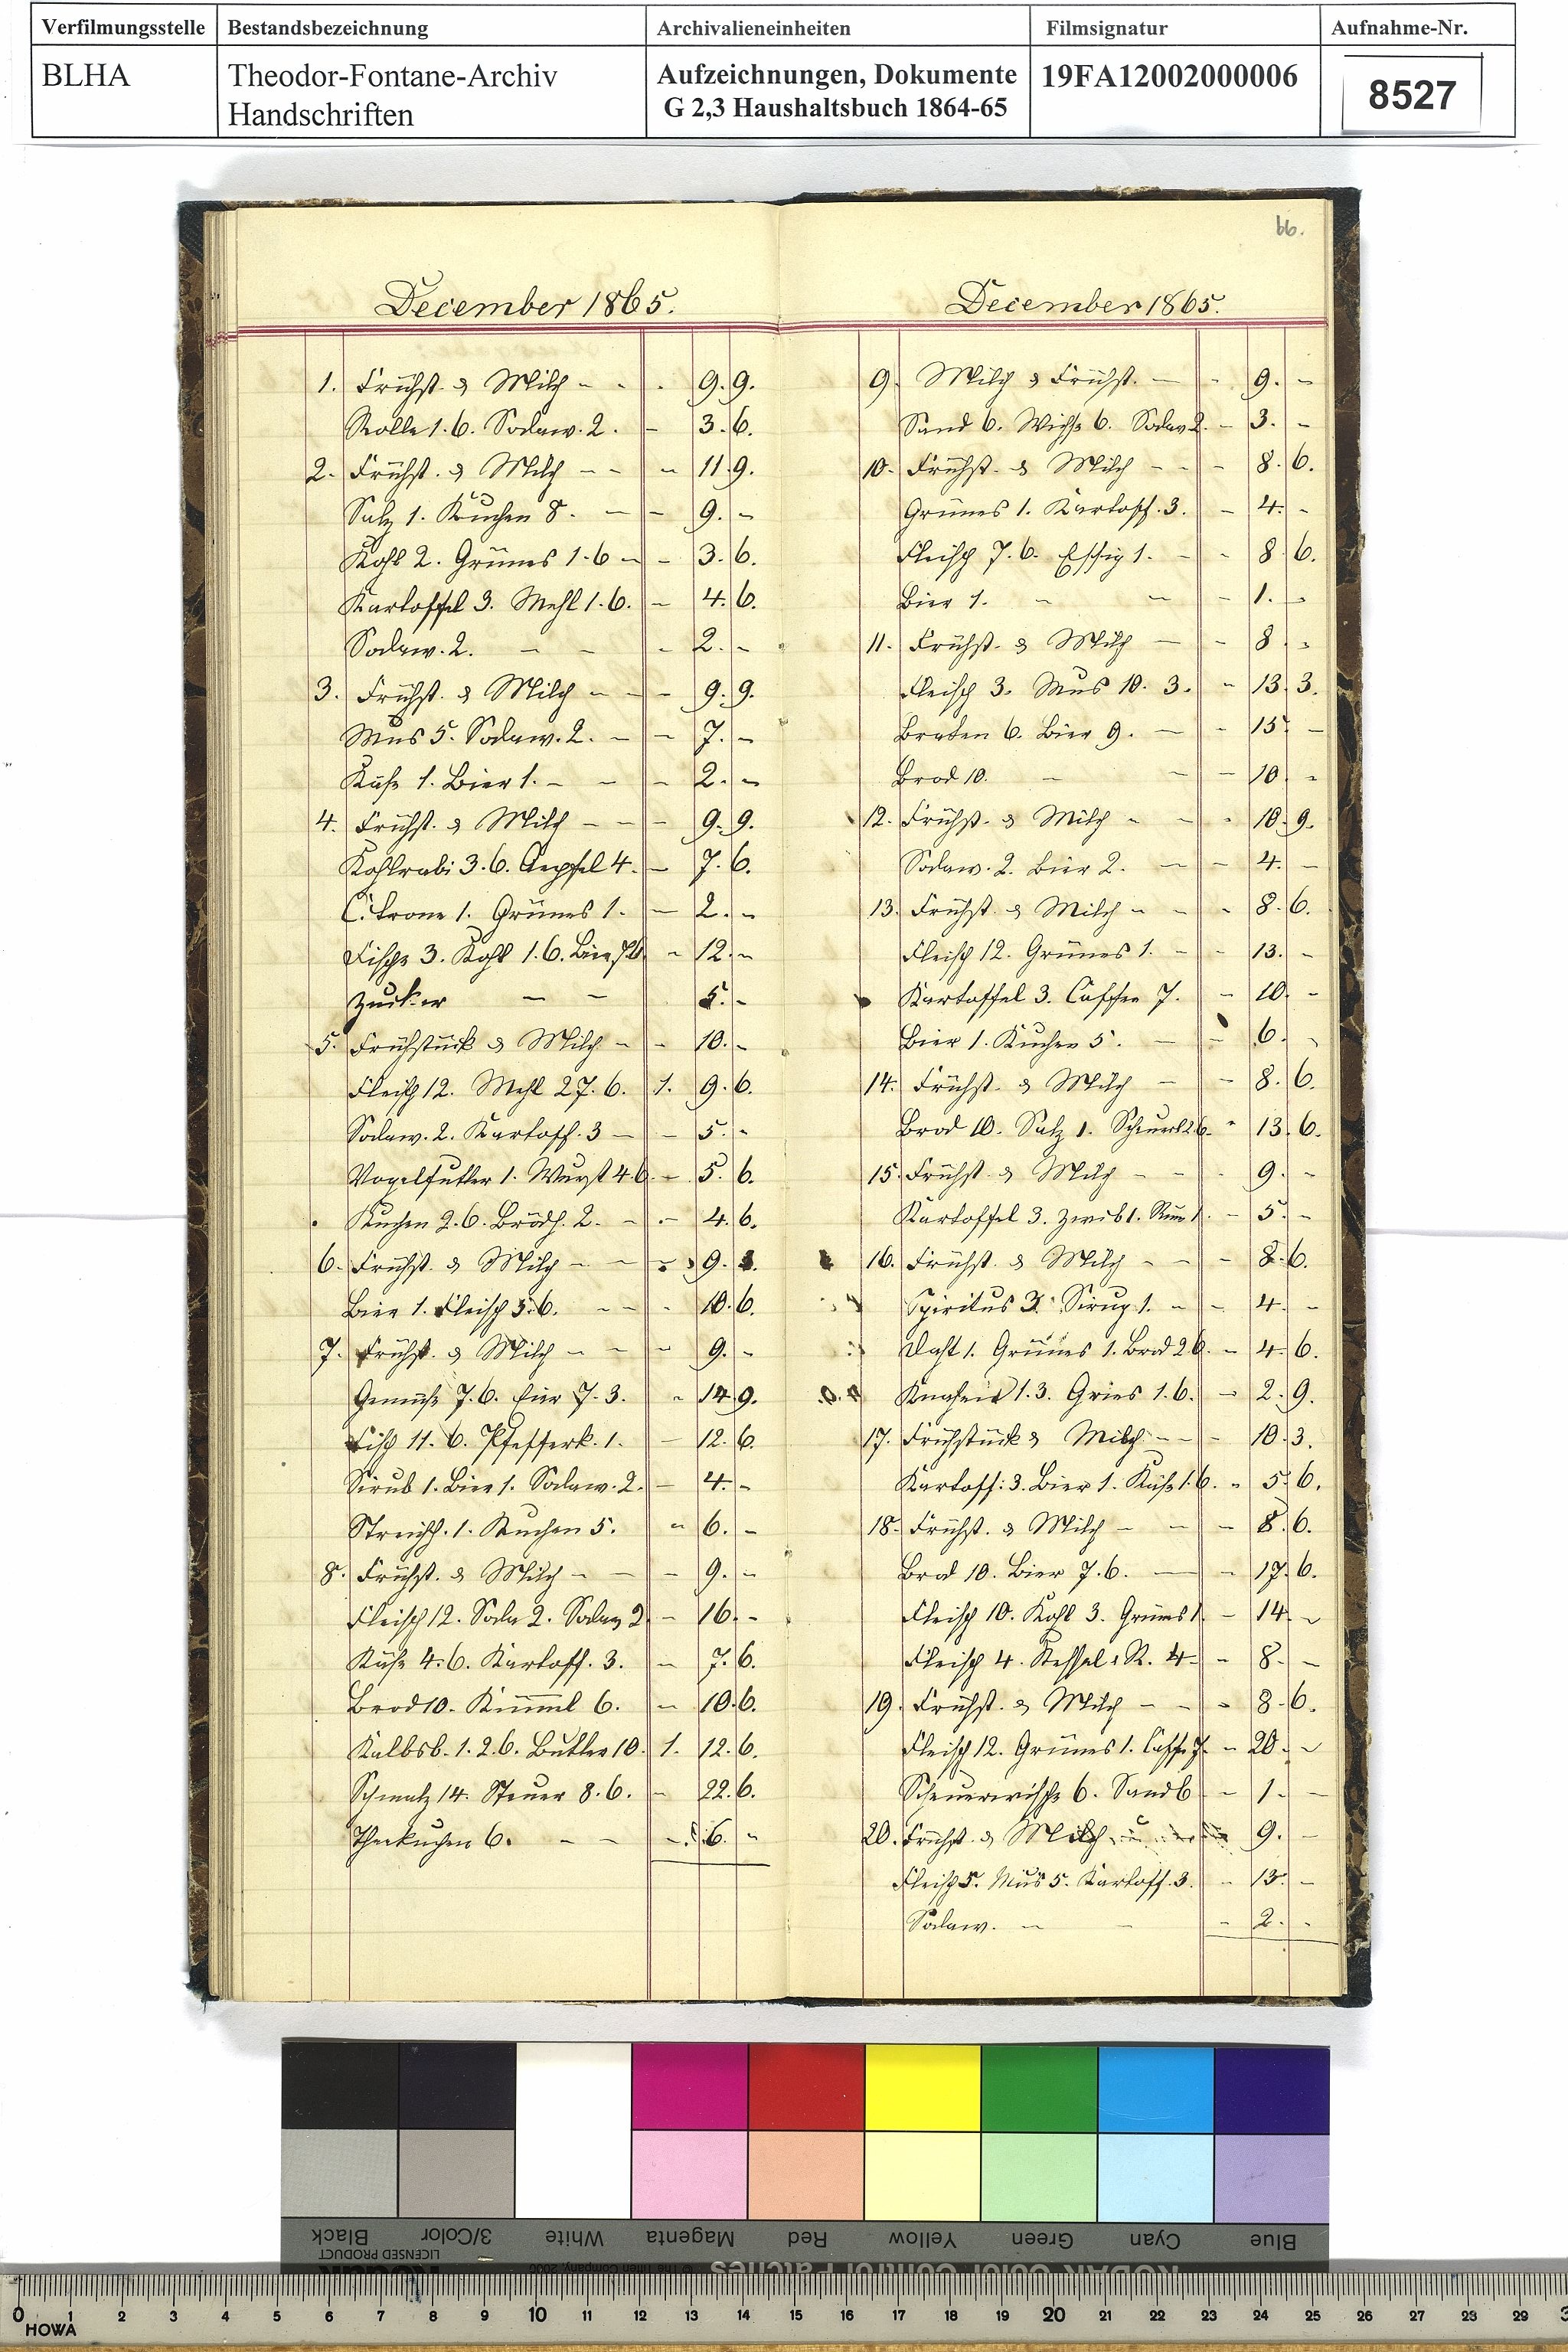 Verfilmungsstelle Bestandsbezeichnung Archivalieneinheiten Filmsignatur Aufnahme-Nr.
BLHA Theodor-Fontane-Archiv Aufzeichnungen, Dokumente 19FA12002000006 8527
Handschriften G 2,3 Haushaltsbuch 1864-65
December 1865.
1. Frühst. & Milch - - - 9. 9.
Rolle 1. 6. Sodaw. 2. - 3. 6.
2. Frühst. & Milch - - - 11. 9.
Salz 1. Kuchen 8. - - 9. -
Kohl 2. Grünes 1. 6 - - 3. 6.
Kartoffel 3. Mehl 1. 6. - 4. 6.
Sodaw. 2. - - - 2. -
3. Frühst. & Milch - - - 9. 9.
Mus 5. Sodaw. 2. - - 7. -
Käse 1. Bier 1. - - - 2. -
4. Frühst. & Milch - - - 9. 9.
Kohlrabi 3. 6. Aepfel 4. - 7. 6.
Citrone 1. Grünes 1. - 2. -
Fische 3. Kohl 1. 6. Bier 7.6. - 12. -
Zucker - - 5. -
5. Frühstück & Milch - - 10. -
Fleisch 12. Mehl 27. 6. 1. 9. 6.
Sodaw. 2. Kartoff. 3 - - 5. -
Vogelfutter 1. Wurst 4 6. - 5. 6.
Kuchen 2. 6. Brödch. 2. - - 4. 6.
6. Frühst. & Milch - - - 9.
Bier 1. Fleisch 6. - - - 10. 6.
7. Frühst. & Milch - - - 9. -
Gemüse 7. 6. Eier 7. 3. - 14. 9.
Fisch 11. 6. Pfefferk. 1. - 12. 6.
Sirub 1. Bier 1. Sodaw. 2. - 4. -
Streichh. 1. Kuchen 5. - 6. -
8. Frühst. & Milch - - - 9. -
Fleisch 12. Soda 2. Sodaw 2 - 16. -
Käse 4. 6. Kartoff. 3. - 7. 6.
Brod 10. Kümmel 6. - 10. 6.
Kalbsb. 1. 2. 6. Butter 10. 1. 12. 6.
Schmalz 14. Steuer 8. 6. - 22. 6.
Theekuchen 6. - - - 6. -
66.
December 1865.
9. Milch & Frühst. - - 9. -
Sand 6. Wichse 6. Sodaw 2. - 3. -
10. Frühst. & Milch - - - 8. 6.
Grünes 1. Kartoff. 3. - 4. -
Fleisch 7. 6. Essig 1. - - 8. 6.
Bier 1. - - - 1. -
11. Frühst. & Milch - - 8. -
Fleisch 3. Mus 10. 3. - 13. 3.
Braten 6. Bier 9. - - 15. -
Brod 10. - - - 10. -
12. Frühst. & Milch - - - 10. 9.
Sodaw. 2. Bier 2. - - 4. -
13. Frühst. & Milch - - - 8. 6.
Fleisch 12. Grünes 1. - - 13. -
Kartoffel 3. Caffee 7. - 10. -
Bier 1. Kuchen 5. - - 6. -
14. Frühst. & Milch - - 8. 6.
Brod 10. Salz 1. 2.6. - 13. 6.
15. Frühst. & Milch - - - 9. -
Kartoffel 3. Zwieb 1. 1. - 5. -
16. Frühst. & Milch - - - 8. 6.
Spiritus 3. Sirup 1. - - 4. -
1. Grünes 1. Brod 2 6. - 4. 6.
1. 3. Gries 1. 6. - 2. 9.
17. Frühstück & Milch - - - 10. 3.
Kartoff: 3. Bier 1. Käse 1. 6. - 5. 6.
18. Frühst. & Milch - - - 8. 6.
Brod 10. Bier 7. 6. - - 17. 6.
Fleisch 10. Kohl 3. Grünes 1. - 14. -
Fleisch 4. 4 - 8. -
19. Frühst. & Milch - - - 8. 6.
Fleisch 12. Grünes 1. Caffe 7. - 20. -
Scheuerwische 6. Sand 6 - 1. -
20. Frühst. & Milch 9. -
Fleisch 5. Mus 5. Kartoff. 3. - 13. -
Sodaw. - - - 2. -
Black 3/Color White Magenta Red Yellow Green Cyan Blue
LICENSED PRODUCT
KODAK Color Control Patches
0 1 2 3 4 5 6 7 8 9 10 11 12 13 14 15 16 17 18 19 20 21 22 23 24 25 26 27 28 29
HOWA